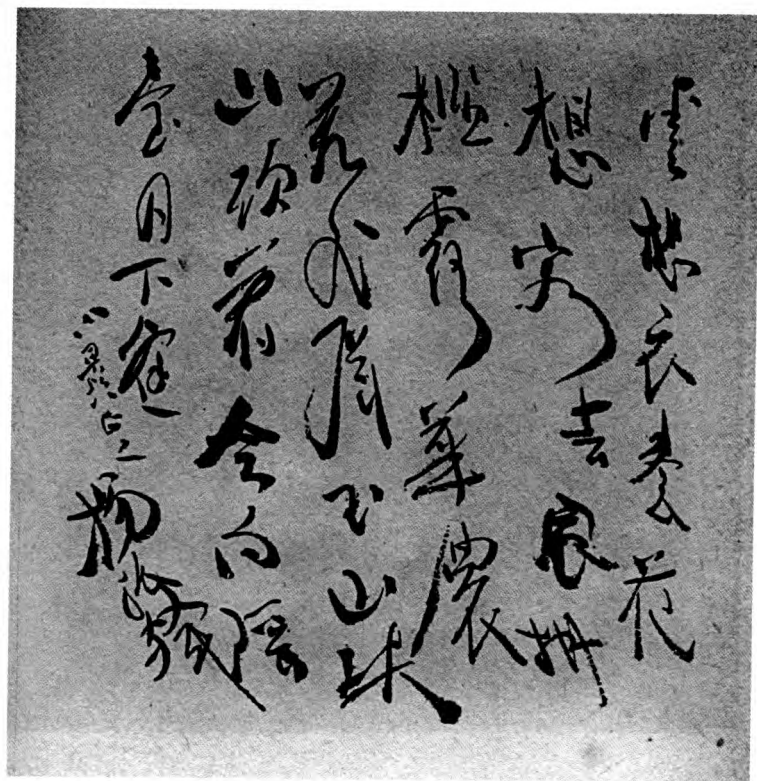 雲想衣裳花
想容春風拂
檻露華濃
若非群玉山
山頭會向瑤
臺月下逢
楊